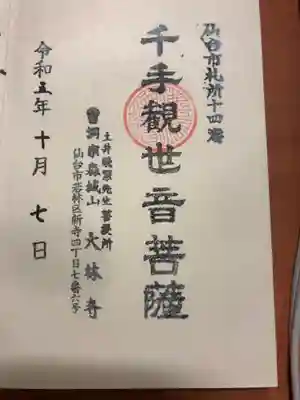 仙台市札所十四番
千手觀世音菩薩
土井晩翠先生菩提所
曹洞宗森城山 大林寺
仙台市若林区新寺四丁目七番六号
令和五年十月七日